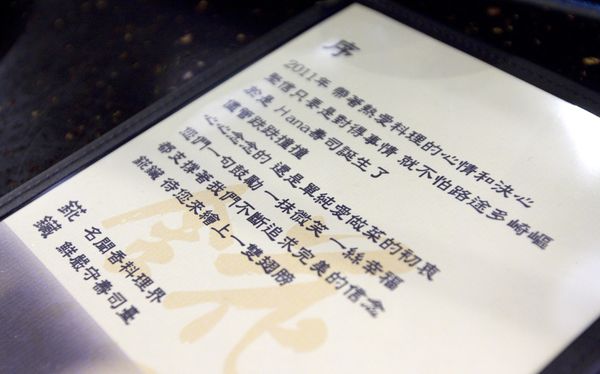 序
2011年 帶著熱愛料理的心情和決心
堅信只要是對得事情 就不怕路途多崎嶇
於是 Hana壽司誕生了
儘管跌跌撞撞
心心念念的 還是單純愛做菜的初衷
您們一句鼓勵 一抹微笑 一絲幸福
都支撐著我們不斷追求完美的信念
待您來繪上一雙翅膀
名聞香料理界
鮮嚴守壽司臺